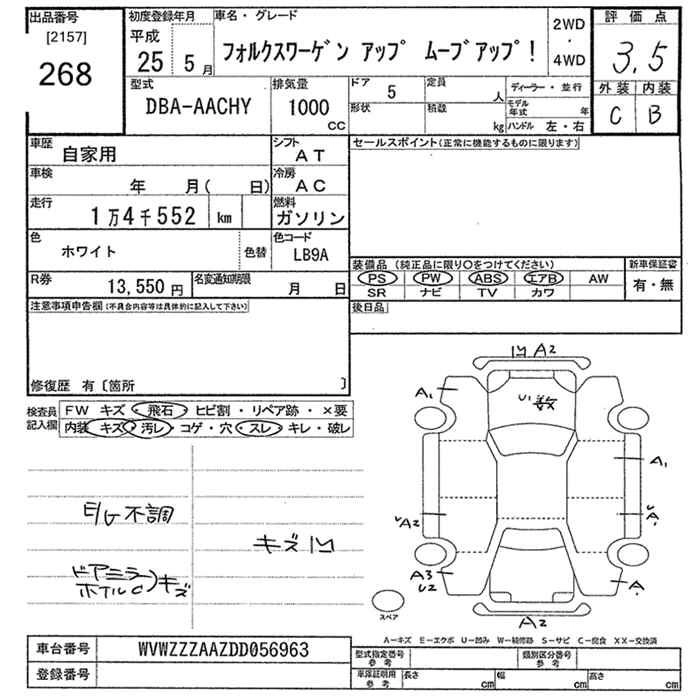 出品番号
[2157]
268
初度登録年月
平成
25 5月
車名・グレード
フォルクスワーゲン アップ ムーブアップ!
2WD
・
4WD
評価点
3.5
外装 内装
C B
型式
DBA-AACHY
排気量
1000
CC
ドア 5
定員 人
ディーラー・並行
形状
積数 kg
モデル年式 年
ハンドル 左・右
車歴
自家用
シフト
AT
セールスポイント(正常に機能するものに限ります)
車検
年 月( 日)
冷房
AC
走行
1万4千552 km
燃料
ガソリン
色
ホワイト
色替
色コード
LB9A
装備品 (純正品に限り〇をつけてください)
新車保証書
PS PW ABS エアB AW
有・無
SR ナビ TV カワ
R券
13,550円
名変通知期限
月 日
後日品
注意事項申告欄(不具合内容等は具体的に記入して下さい)
修復歴 有〔箇所 〕
検査員記入欄
FW キズ・飛石・ヒビ割・リペア跡・×要
内装 キズ・汚レ・コゲ・穴・スレ・キレ・破レ
A2
A1
U1 数
A1
A2
A
A3
U2
A
A2
スペア
E/G不調
キズ凹
ドアミラー
ホイルC
キズ
A－キズ E－エクボ U－凹み W－補修跡 S－サビ C－腐食 XX－交換済
車台番号
WVWZZZAAZDD056963
登録番号
型式指定番号
参考
類別区分番号
参考
車庫証明用
参考
長さ cm 幅 cm 高さ cm